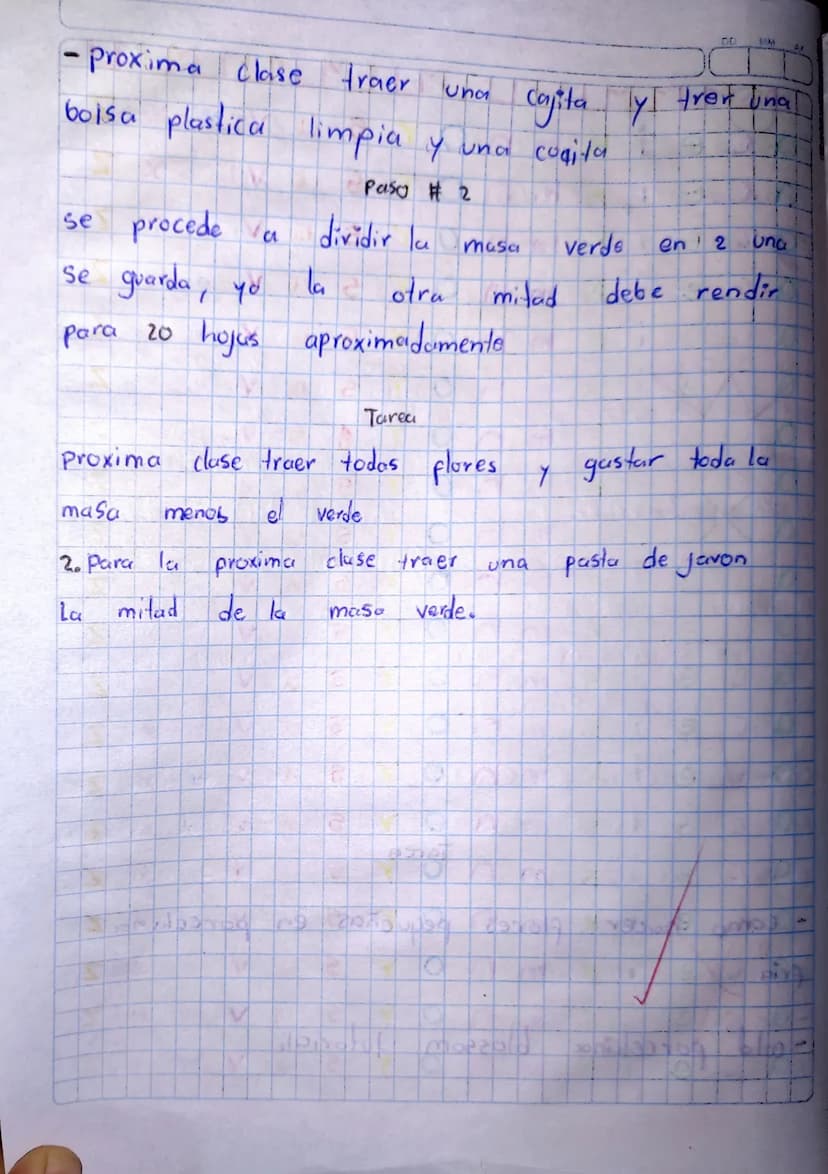 - proxima clase traer una cajita y trer una
bolsa plastica limpia y una cogita
Paso # 2
se procede a dividir la masa verde en 2 una
se guarda, yo la otra mitad debe rendir
para 20 hojas aproximadamente
Tarea
proxima clase traer todas flores y gastar toda la
masa menos el verde
2. Para la proxima clase traer una pasta de javon
La mitad de la masa verde.